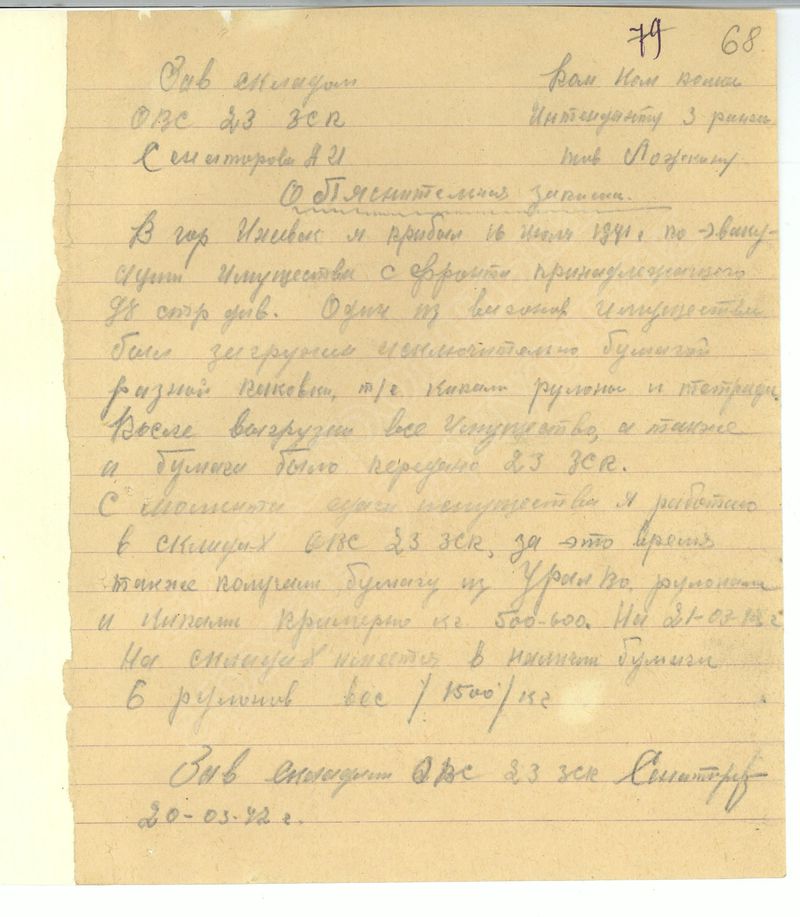 79 68
Зав складом Пом Нач
ОВС 23 ЗСК Интенданту 3 ранга
Сенаторова А И тов Ложкину
Обяснительная записка.
В гор Ижевск я прибыл 16 июля 1941 г по эваку-
ации имущества с фронта принадлежащего
98 стр див. Один из вагонов имущества
был загружен исключительно бумагой
разной паковки, т/е кипами рулоны и тетради.
После выгрузки все имущество, а также
и бумага было передано 23 ЗСК.
С момента сдачи имущества я работаю
в складах ОВС 23 ЗСК, за это время
также получали бумагу из УралВо, рулонами
и кипами примерно кг 500-600. На 21-03-42 г
На складах имеется в наличии бумаги
6 рулонов вес /1500/ кг
Зав складом ОВС 23 ЗСК Сенаторов
20-03-42 г.